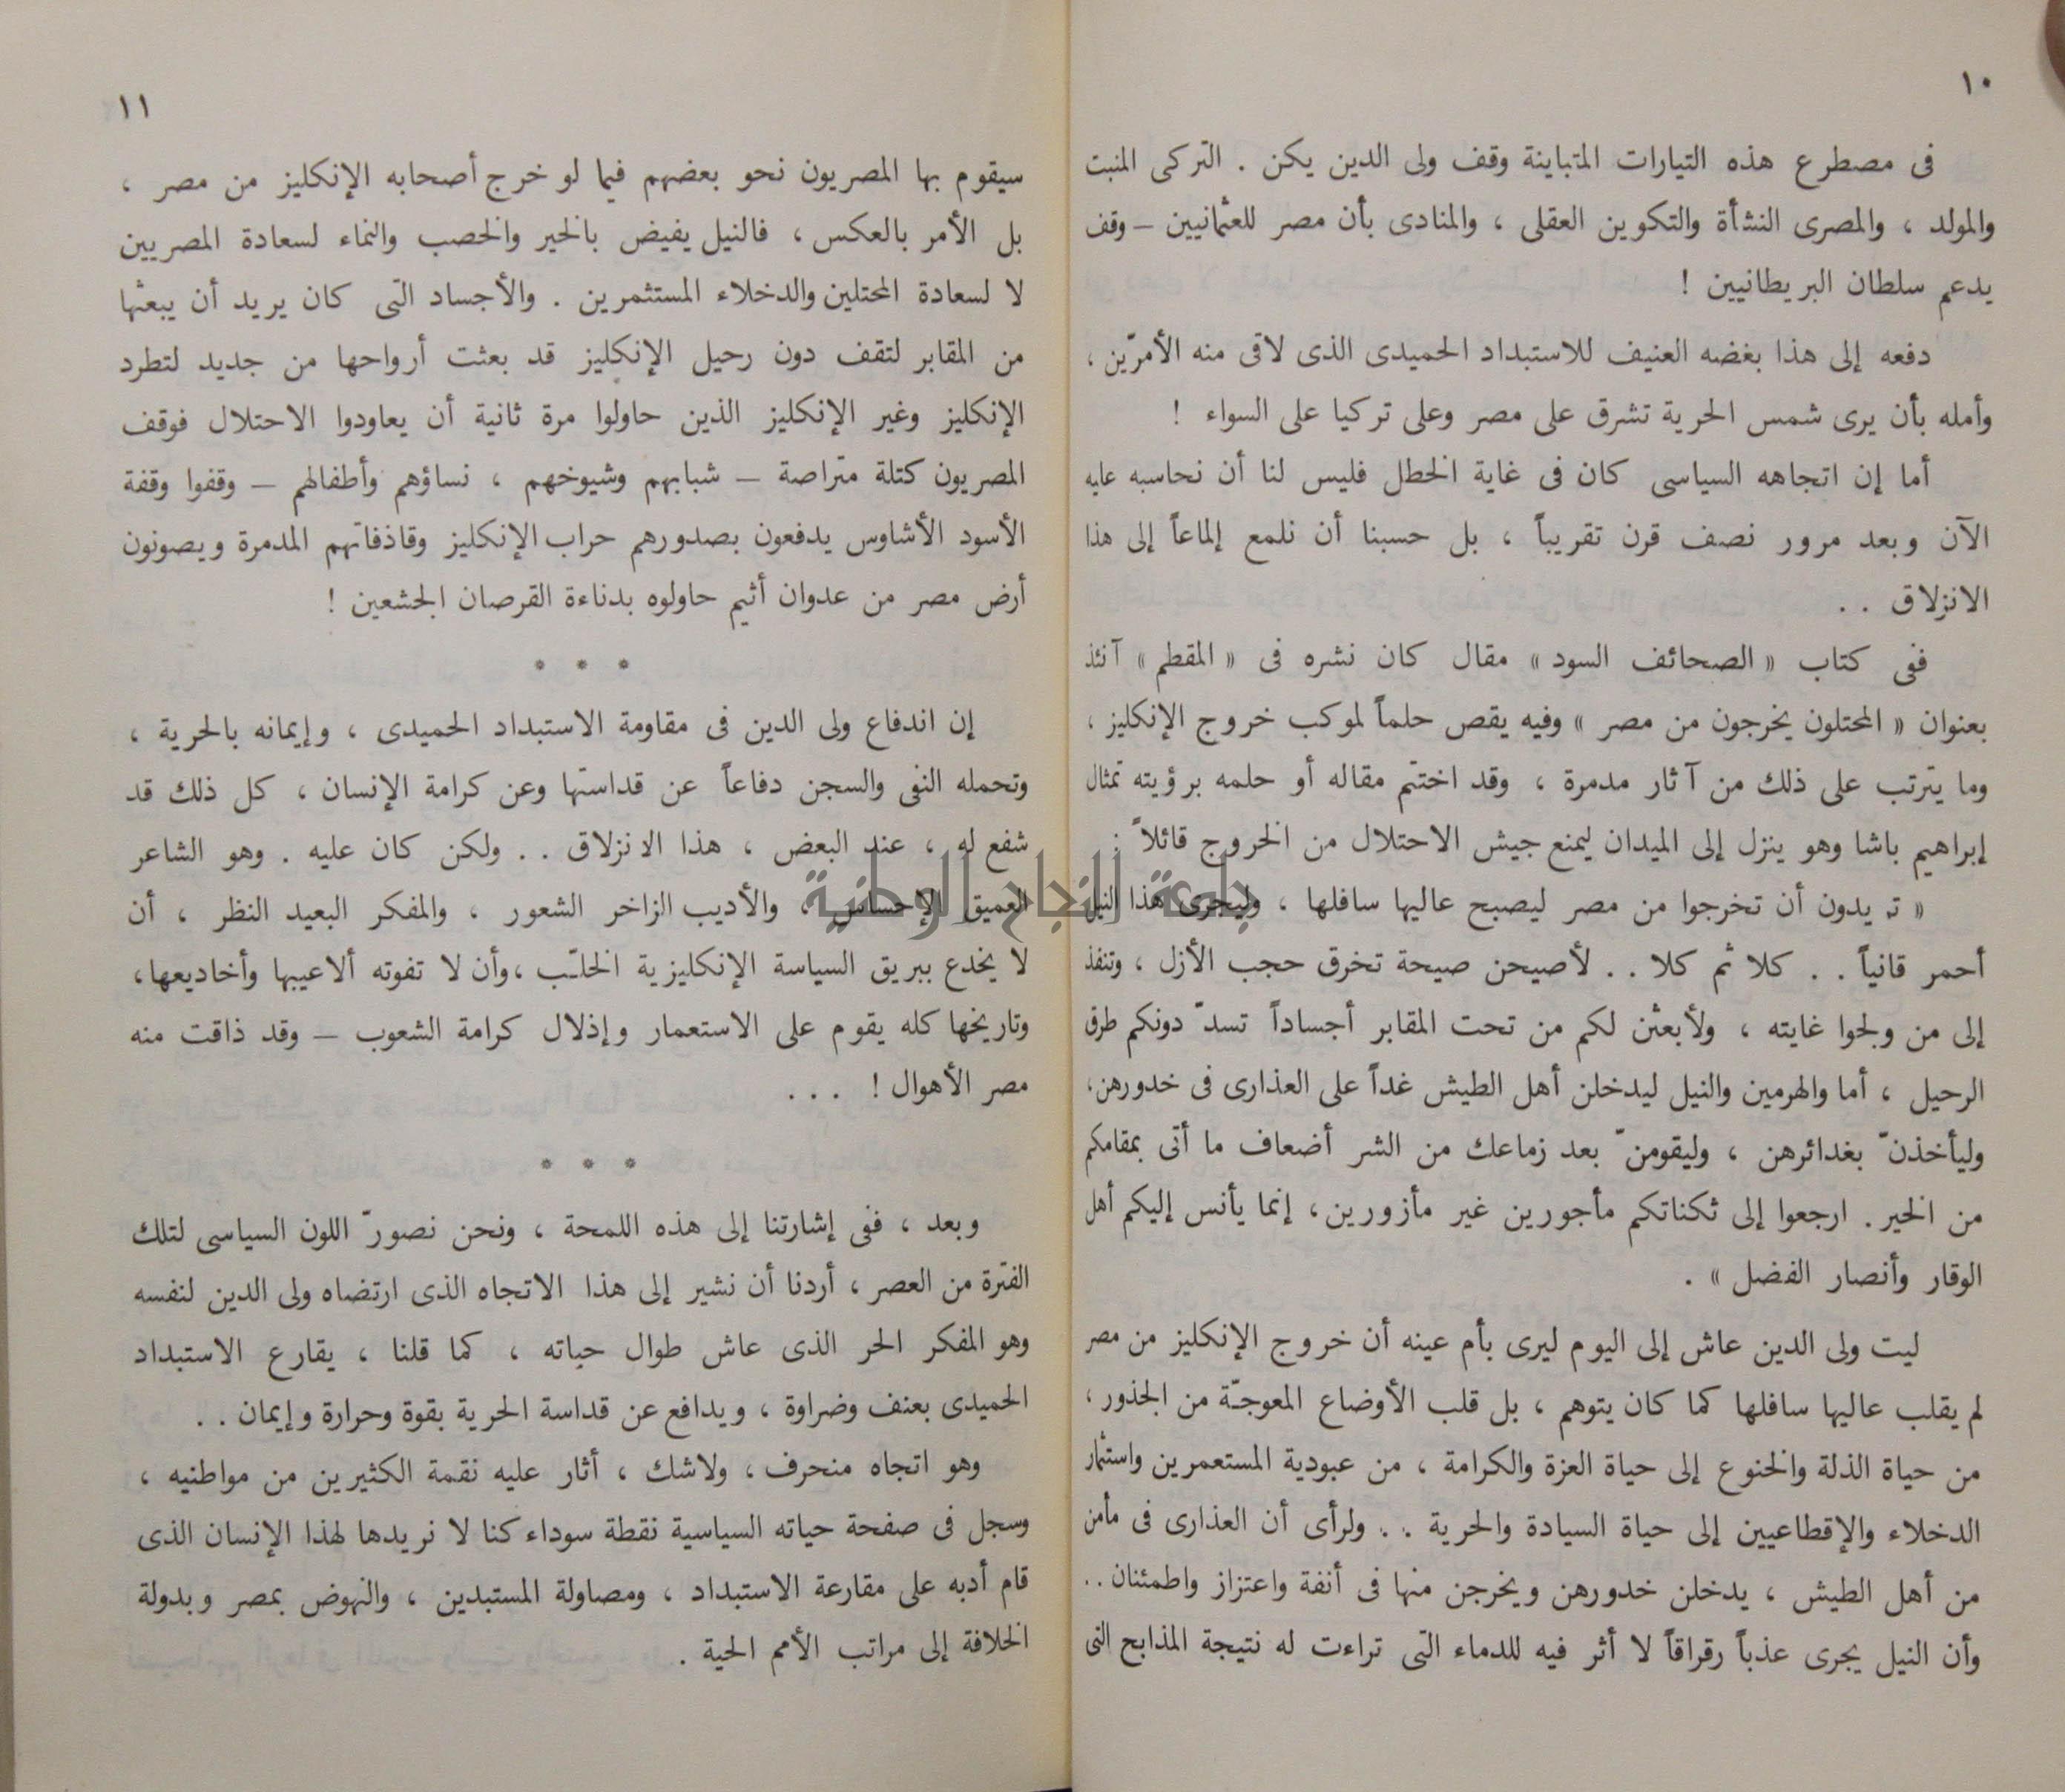 ١٠
فى مصطرع هذه التيارات المتباينة وقف ولى الدين يكن . التركى المنبت
والمولد ، والمصرى النشأة والتكوين العقلى ، والمنادى بأن مصر للعثمانيين – وقف
يدعم سلطان البريطانيين !
دفعه إلى هذا بغضه العنيف للاستبداد الحميدى الذى لاقى منه الأمرّين ،
وأمله بأن يرى شمس الحرية تشرق على مصر وعلى تركيا على السواء !
أما إن اتجاهه السياسى كان فى غاية الخطل فليس لنا أن نحاسبه عليه
الآن وبعد مرور نصف قرن تقريباً ، بل حسبنا أن نلمع إلماعاً إلى هذا
الانزلاق . .
ففى كتاب « الصحائف السود » مقال كان نشره فى « المقطم » آنئذ
بعنوان « المحتلون يخرجون من مصر » وفيه يقص حلماً لموكب خروج الإنكليز ،
وما يترتب على ذلك من آثار مدمرة ، وقد اختتم مقاله أو حلمه برؤيته تمثال
إبراهيم باشا وهو ينزل إلى الميدان ليمنع جيش الاحتلال من الخروج قائلاً :
« تريدون أن تخرجوا من مصر ليصبح عاليها سافلها ، وليجرى هذا النيل
أحمر قانياً . . كلا ثم كلا . . لأصيحن صيحة تخرق حجب الأزل ، وتنفذ
إلى من ولجوا غايته ، ولأبعثن لكم من تحت المقابر أجساداً تسدّ دونكم طرق
الرحيل ، أما والهرمين والنيل ليدخلن أهل الطيش غداً على العذارى فى خدورهن ،
وليأخذنّ بغدائرهن ، وليقومنّ بعد زماعك من الشر أضعاف ما أتى بمقامكم
من الخير . ارجعوا إلى ثكناتكم مأجورين غير مأزورين ، إنما يأنس إليكم أهل
الوقار وأنصار الفضل » .
ليت ولى الدين عاش إلى اليوم ليرى بأم عينه أن خروج الإنكليز من مصر
لم يقلب عاليها سافلها كما كان يتوهم ، بل قلب الأوضاع المعوجّة من الجذور ،
من حياة الذلة والخنوع إلى حياة العزة والكرامة ، من عبودية المستعمرين واستثمار
الدخلاء والإقطاعيين إلى حياة السيادة والحرية . . ولرأى أن العذارى فى مأمن
من أهل الطيش ، يدخلن خدورهن ويخرجن منها فى أنفة واعتزاز واطمئنان . .
وأن النيل يجرى عذباً رقراقاً لا أثر فيه للدماء التى تراءت له نتيجة المذابح التى
١١
سيقوم بها المصريون نحو بعضهم فيما لو خرج أصحابه الإنكليز من مصر ،
بل الأمر بالعكس ، فالنيل يفيض بالخير والخصب والنماء لسعادة المصريين
لا لسعادة المحتلين والدخلاء المستثمرين . والأجساد التى كان يريد أن يبعثها
من المقابر لتقف دون رحيل الإنكليز قد بعثت أرواحها من جديد لتطرد
الإنكليز وغير الإنكليز الذين حاولوا مرة ثانية أن يعاودوا الاحتلال فوقف
المصريون كتلة متراصة – شبابهم وشيوخهم ، نساؤهم وأطفالهم – وقفوا وقفة
الأسود الأشاوس يدفعون بصدورهم حراب الإنكليز وقاذفاتهم المدمرة ويصونون
أرض مصر من عدوان أثيم حاولوه بدناءة القرصان الجشعين !
* * *
إن اندفاع ولى الدين فى مقاومة الاستبداد الحميدى ، وإيمانه بالحرية ،
وتحمله النفى والسجن دفاعاً عن قداستها وعن كرامة الإنسان ، كل ذلك قد
شفع له ، عند البعض ، هذا الانزلاق . . ولكن كان عليه . وهو الشاعر
العميق الإحساس ، والأديب الزاخر الشعور ، والمفكر البعيد النظر ، أن
لا يخدع ببريق السياسة الإنكليزية الخلّب ، وأن لا تفوته ألاعيبها وأخاديعها ،
وتاريخها كله يقوم على الاستعمار وإذلال كرامة الشعوب – وقد ذاقت منه
مصر الأهوال ! . . .
* * *
وبعد ، ففى إشارتنا إلى هذه اللمحة ، ونحن نصورّ اللون السياسى لتلك
الفترة من العصر ، أردنا أن نشير إلى هذا الاتجاه الذى ارتضاه ولى الدين لنفسه
وهو المفكر الحر الذى عاش طوال حياته ، كما قلنا ، يقارع الاستبداد
الحميدى بعنف وضراوة ، ويدافع عن قداسة الحرية بقوة وحرارة وإيمان . .
وهو اتجاه منحرف ، ولاشك ، أثار عليه نقمة الكثيرين من مواطنيه ،
وسجل فى صفحة حياته السياسية نقطة سوداء كنا لا نريدها لهذا الإنسان الذى
قام أدبه على مقارعة الاستبداد ، ومصاولة المستبدين ، والنهوض بمصر وبدولة
الخلافة إلى مراتب الأمم الحية .
جامعة النجاح الوطنية